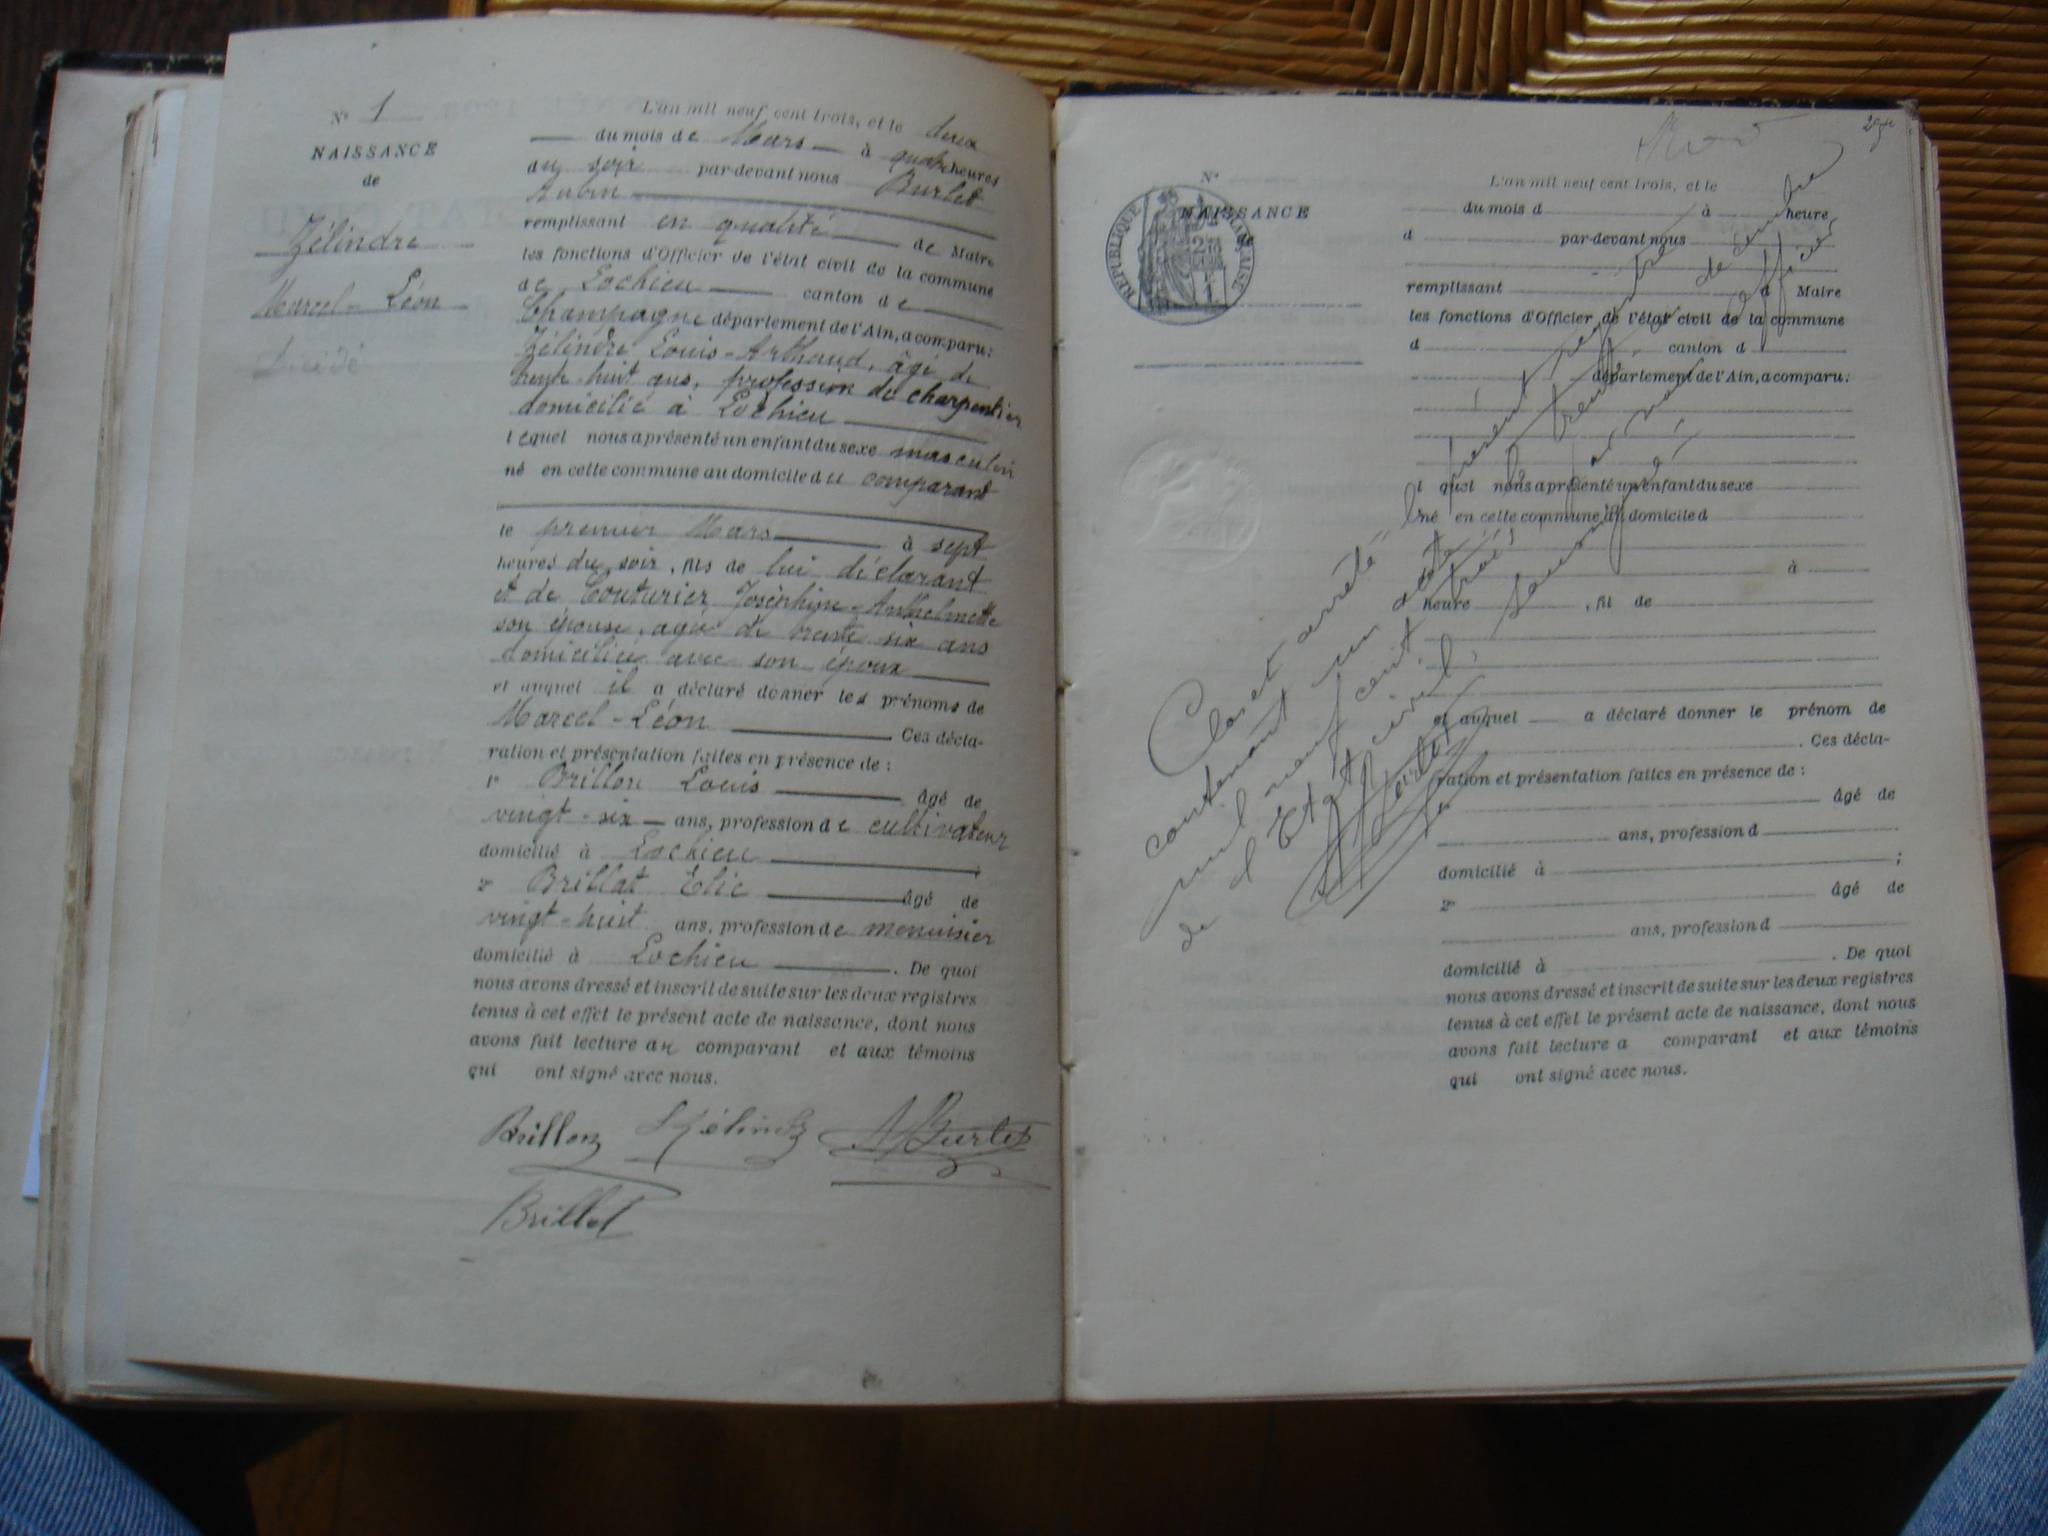 N° 1
NAISSANCE
de
Zélindre
Marcel-Léon
Décédé
L'an mil neuf cent trois, et le deux
du mois de Mars à quatre heures
du soir par-devant nous Burlet
Aubin
remplissant en qualité de Maire
les fonctions d'Officier de l'état civil de la commune
de Lochieu canton de
Champagne département de l'Ain, a comparu:
Zélindre Louis-Arthaud, âgé de
trente-huit ans, profession de charpentier
domicilié à Lochieu
lequel nous a présenté un enfant du sexe masculin
né en cette commune au domicile du comparant
le premier Mars à sept
heures du soir, fils de lui déclarant
et de Couturier Joséphine-Anthelmette
son épouse, agée de trente six ans
domiciliée avec son époux
et auquel il a déclaré donner les prénoms de
Marcel-Léon Ces décla-
ration et présentation faites en présence de :
1° Brillon Louis âgé de
vingt-six ans, profession de cultivateur
domicilié à Lochieu ;
2° Brillat Élie âgé de
vingt-huit ans, profession de menuisier
domicilié à Lochieu . De quoi
nous avons dressé et inscrit de suite sur les deux registres
tenus à cet effet le présent acte de naissance, dont nous
avons fait lecture au comparant et aux témoins
qui ont signé avec nous.
Brillon Zélindre A Burlet
Brillat
N°
NAISSANCE
de
RÉPUBLIQUE FRANÇAISE
L'an mil neuf cent trois, et le
du mois d à heure
d par-devant nous
remplissant d Maire
les fonctions d'Officier de l'état civil de la commune
d canton d
département de l'Ain, a comparu:
l quel nous a présenté un enfant du sexe
né en cette commune au domicile d
à
heure , fil de
et auquel a déclaré donner le prénom de
. Ces décla-
ration et présentation faites en présence de :
âgé de
ans, profession d
domicilié à ;
2° âgé de
ans, profession d
domicilié à . De quoi
nous avons dressé et inscrit de suite sur les deux registres
tenus à cet effet le présent acte de naissance, dont nous
avons fait lecture a comparant et aux témoins
qui ont signé avec nous.
Clos et arrêté le présent registre
contenant un acte, le trente un décembre
mil neuf cent trois, par nous officier
de l'Etat civil, soussigné.
A Burlet